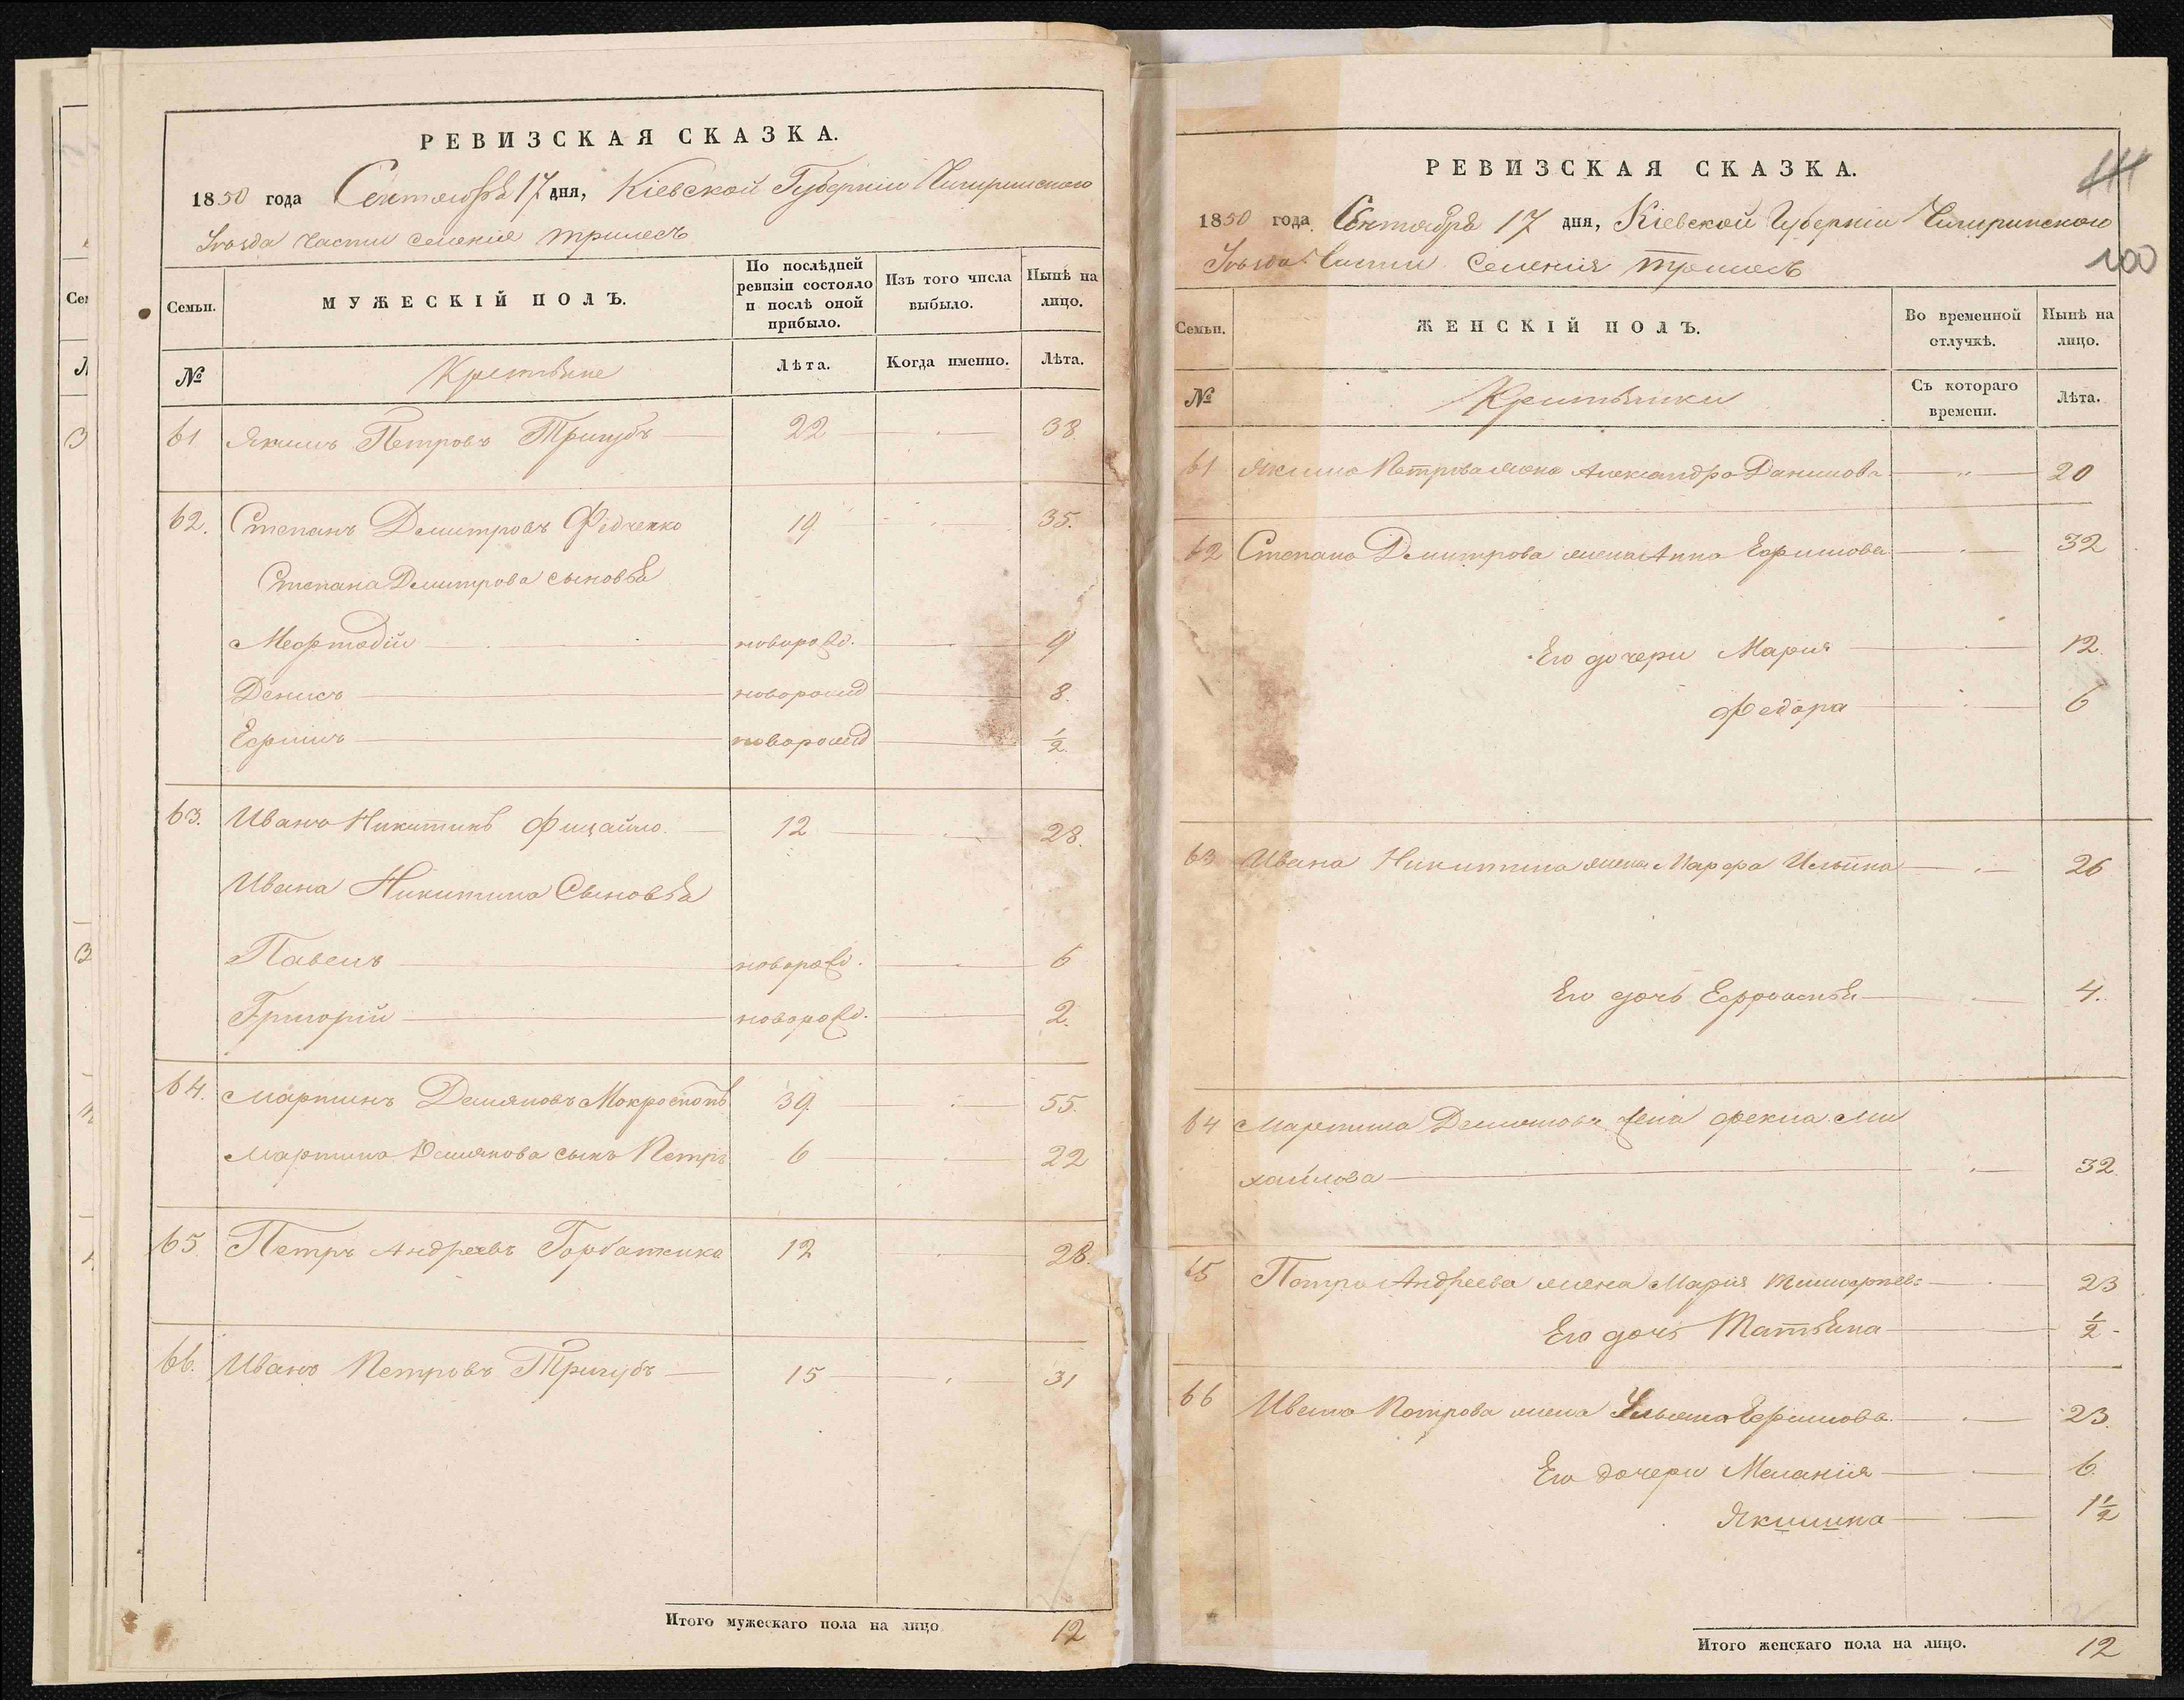 РЕВИЗСКАЯ СКАЗКА.
1850 года Сентября 17 дня, Кіевской Губерніи Чигиринского
Уѣзда Части селенія Трилесъ
Семьи. МУЖЕСКІЙ ПОЛЪ. По послѣдней ревизіи состояло и послѣ оной прибыло. Изъ того числа выбыло. Нынѣ на лицо.
№ Крестьяне Лѣта. Когда именно. Лѣта.
61 Якимъ Петровъ Тригубъ 22 38
62. Степанъ Дмитровъ Фідченко 19 35.
Степана Дмитрова сыновья
Мефтодій новорожд. 9
Денисъ новорожд 8.
Ефимъ новорожд ½.
63. Иванъ Никитинъ 12 28.
Ивана Никитина Сыновья
Павелъ новорожд. 6
Григорій новорожд. 2.
64. Мартинъ Демяновъ 39. 55.
Мартина Демянова сынъ Петръ 6 22
65. Петръ Андреевъ 12 28.
66. Иванъ Петровъ Тригубъ 15 31
Итого мужескаго пола на лицо 12
РЕВИЗСКАЯ СКАЗКА.
111
1850 года Сентября 17 дня, Кіевской Губерніи Чигиринского
Уѣзда Части Селенія Трилесъ
100
Семьи. ЖЕНСКІЙ ПОЛЪ. Во временной отлучкѣ. Нынѣ на лицо.
№ Крестьянки Съ котораго времени. Лѣта.
61 Якима Петрова жена Александра Данилова 20
62 Степана Дмитрова жена Анна Ефимова 32
Его дочери Марія 12.
Федора 6
63 Ивана Никитина жена Марфа Ильина 26
Его дочь Ефросинья 4.
64 Мартина Демянова жена Фекла Ми
хайлова 32.
65 Петра Андреева жена Марія Тимофѣева 23
Его дочь Татьяна ½
66 Ивана Петрова жена Ульяна Ефимова 23.
Его дочери Меланія 6.
Якилина 1½
Итого женскаго пола на лицо. 12